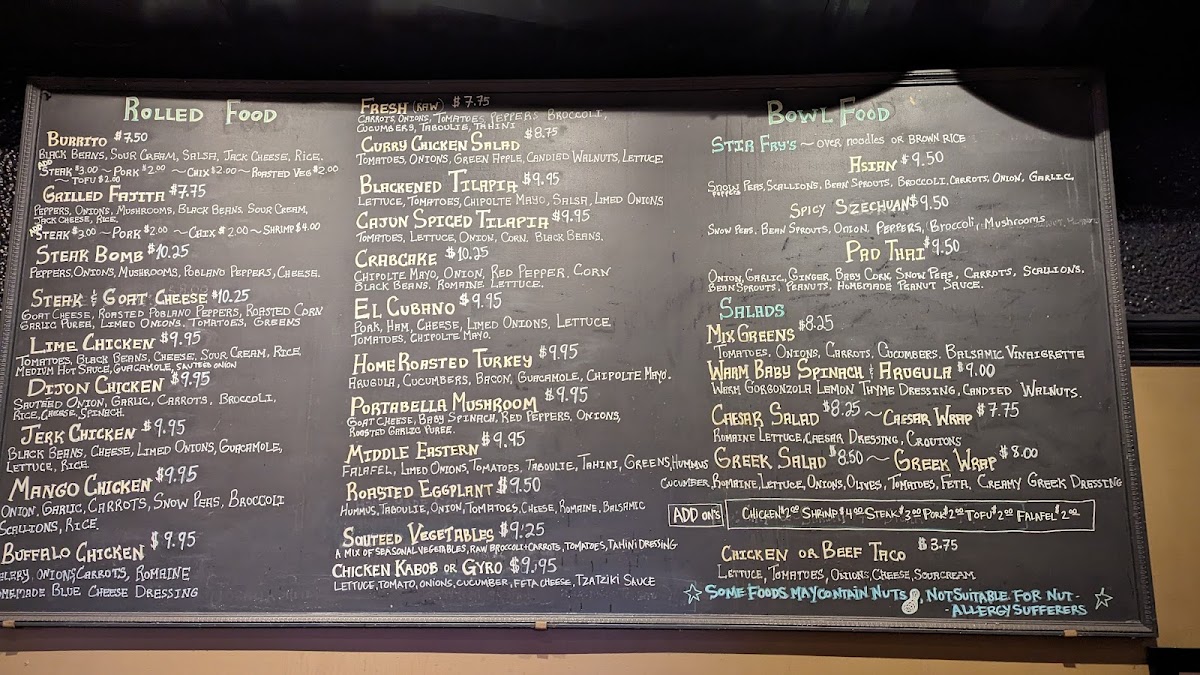 ROLLED FOOD
BURRITO $7.50
BLACK BEANS, SOUR CREAM, SALSA, JACK CHEESE, RICE.
ADD STEAK $3.00 ~ PORK $2.00 ~ CHIX $2.00 ~ ROASTED VEG $2.00
~ TOFU $2.00
GRILLED FAJITA $7.75
PEPPERS, ONIONS, MUSHROOMS, BLACK BEANS, SOUR CREAM,
JACK CHEESE, RICE.
ADD STEAK $3.00 ~ PORK $2.00 ~ CHIX $2.00 ~ SHRIMP $4.00
STEAK BOMB $10.25
PEPPERS, ONIONS, MUSHROOMS, POBLANO PEPPERS, CHEESE.
STEAK & GOAT CHEESE $10.25
GOAT CHEESE, ROASTED POBLANO PEPPERS, ROASTED CORN
GARLIC PUREE, LIMED ONIONS, TOMATOES, GREENS
LIME CHICKEN $9.95
TOMATOES, BLACK BEANS, CHEESE, SOUR CREAM, RICE
MEDIUM HOT SAUCE, GUACAMOLE, SAUTEED ONION
DIJON CHICKEN $9.95
SAUTEED ONION, GARLIC, CARROTS, BROCCOLI,
RICE, CHEESE, SPINACH.
JERK CHICKEN $9.95
BLACK BEANS, CHEESE, LIMED ONIONS, GUACAMOLE,
LETTUCE, RICE.
MANGO CHICKEN $9.95
ONION, GARLIC, CARROTS, SNOW PEAS, BROCCOLI
SCALLIONS, RICE.
BUFFALO CHICKEN $9.95
ONIONS, CARROTS, ROMAINE
BLUE CHEESE DRESSING
FRESH (RAW) $7.75
CARROTS, ONIONS, TOMATOES, PEPPERS, BROCCOLI,
CUCUMBERS, TABOULIE, TAHINI
CURRY CHICKEN SALAD $8.75
TOMATOES, ONIONS, GREEN APPLE, CANDIED WALNUTS, LETTUCE
BLACKENED TILAPIA $9.95
LETTUCE, TOMATOES, CHIPOLTE MAYO, SALSA, LIMED ONIONS
CAJUN SPICED TILAPIA $9.95
TOMATOES, LETTUCE, ONION, CORN, BLACK BEANS.
CRABCAKE $10.25
CHIPOLTE MAYO, ONION, RED PEPPER, CORN
BLACK BEANS, ROMAINE LETTUCE.
EL CUBANO $9.95
PORK, HAM, CHEESE, LIMED ONIONS, LETTUCE
TOMATOES, CHIPOLTE MAYO.
HOME ROASTED TURKEY $9.95
ARUGULA, CUCUMBERS, BACON, GUACAMOLE, CHIPOLTE MAYO.
PORTABELLA MUSHROOM $9.95
GOAT CHEESE, BABY SPINACH, RED PEPPERS, ONIONS,
ROASTED GARLIC PUREE.
MIDDLE EASTERN $9.95
FALAFEL, LIMED ONIONS, TOMATOES, TABOULIE, TAHINI, GREENS, HUMMUS
ROASTED EGGPLANT $9.50
HUMMUS, TABOULIE, ONION, TOMATOES, CHEESE, ROMAINE, BALSAMIC
SAUTEED VEGETABLES $9.25
A MIX OF SEASONAL VEGETABLES, RAW BROCCOLI + CARROTS, TOMATOES, TAHINI DRESSING
CHICKEN KABOB OR GYRO $9.95
LETTUCE, TOMATO, ONIONS, CUCUMBER, FETA CHEESE, TZATZIKI SAUCE
BOWL FOOD
STIR FRY'S ~ OVER NOODLES OR BROWN RICE
ASIAN $9.50
SNOW PEAS, SCALLIONS, BEAN SPROUTS, BROCCOLI, CARROTS, ONION, GARLIC,
PEPPERS
SPICY SZECHUAN $9.50
SNOW PEAS, BEAN SPROUTS, ONION, PEPPERS, BROCCOLI, MUSHROOMS
PAD THAI $9.50
ONION, GARLIC, GINGER, BABY CORN, SNOW PEAS, CARROTS, SCALLIONS.
BEAN SPROUTS, PEANUTS, HOMEMADE PEANUT SAUCE.
SALADS
MIX GREENS $8.25
TOMATOES, ONIONS, CARROTS, CUCUMBERS, BALSAMIC VINAIGRETTE
WARM BABY SPINACH & ARUGULA $9.00
WARM GORGONZOLA LEMON THYME DRESSING, CANDIED WALNUTS.
CAESAR SALAD $8.25 ~ CAESAR WRAP $7.75
ROMAINE LETTUCE, CAESAR DRESSING, CROUTONS
GREEK SALAD $8.50 ~ GREEK WRAP $8.00
CUCUMBER, ROMAINE, LETTUCE, ONIONS, OLIVES, TOMATOES, FETA, CREAMY GREEK DRESSING
ADD ON'S CHICKEN $2.00 SHRIMP $4.00 STEAK $3.00 PORK $2.00 TOFU $2.00 FALAFEL $2.00
CHICKEN OR BEEF TACO $3.75
LETTUCE, TOMATOES, ONIONS, CHEESE, SOUR CREAM
SOME FOODS MAY CONTAIN NUTS, NOT SUITABLE FOR NUT-
-ALLERGY SUFFERERS